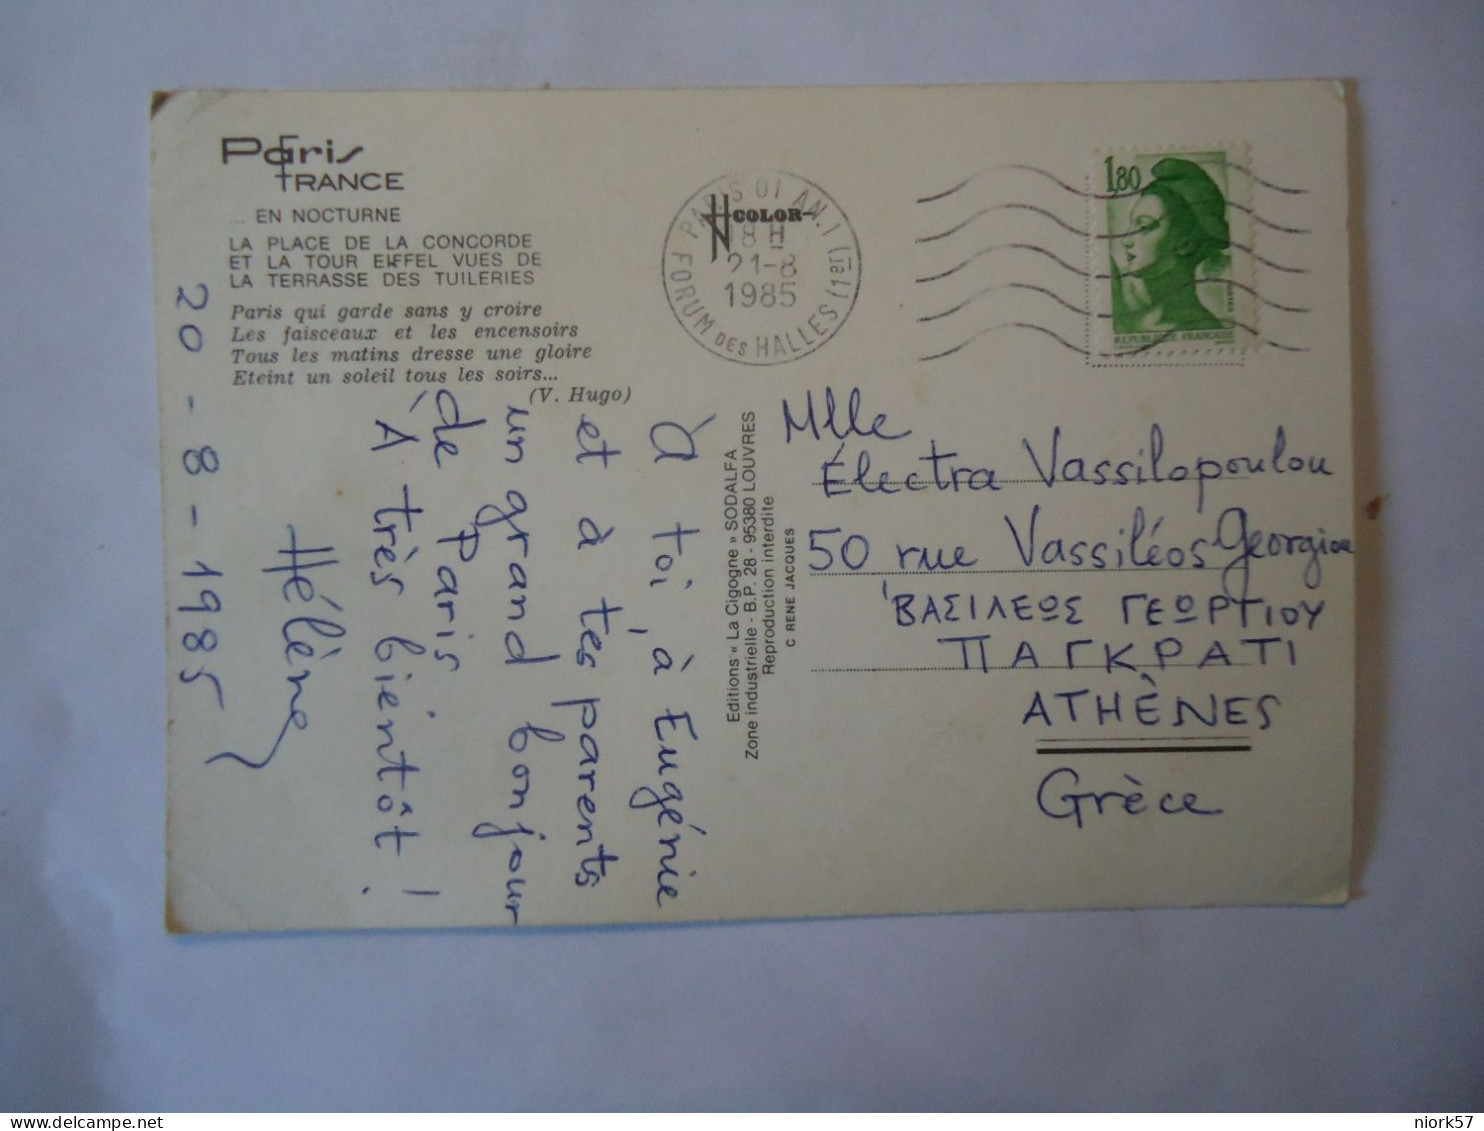 Paris
FRANCE
... EN NOCTURNE
LA PLACE DE LA CONCORDE
ET LA TOUR EIFFEL VUES DE
LA TERRASSE DES TUILERIES
Paris qui garde sans y croire
Les faisceaux et les encensoirs
Tous les matins dresse une gloire
Eteint un soleil tous les soirs...
(V. Hugo)
À toi, à Eugénie
et à tes parents
un grand bonjour
de Paris
À très bientôt !
Hélène
20-8-1985
COLOR
PARIS 01 AN.1 (1er)
18 H
21-8
1985
FORUM DES HALLES
1,80
REPUBLIQUE FRANÇAISE
Editions « La Cigogne » SODALFA
Zone industrielle - B.P. 28 - 95380 LOUVRES
Reproduction interdite
C RENE JACQUES
Mlle
Électra Vassilopoulou
50 rue Vassiléos Georgiou
ΒΑΣΙΛΕΩΣ ΓΕΩΡΓΙΟΥ
ΠΑΓΚΡΑΤΙ
ATHÈNES
Grèce
niork57